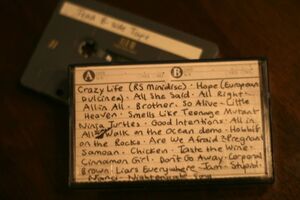 Toad B-side Tape
A B
Crazy Life (RS minidisc) · Hope (European
Dulcinea) · All She Said · All Right ·
All in All · Brother · So Alive · Little
Heaven · Smells Like Teenage Mutant
Ninja Turtles · Good Intentions · All in
All · Walk on the Ocean demo · Hobbit
on the Rocks · Are We Afraid · Pregnant
Samoan · Chicken · Taste the Wine ·
Cinnamon Girl · Don't Go Away · Corporal
Brown · Liars Everywhere · Jam · Stupid ·
Nanci · Nightengale Song